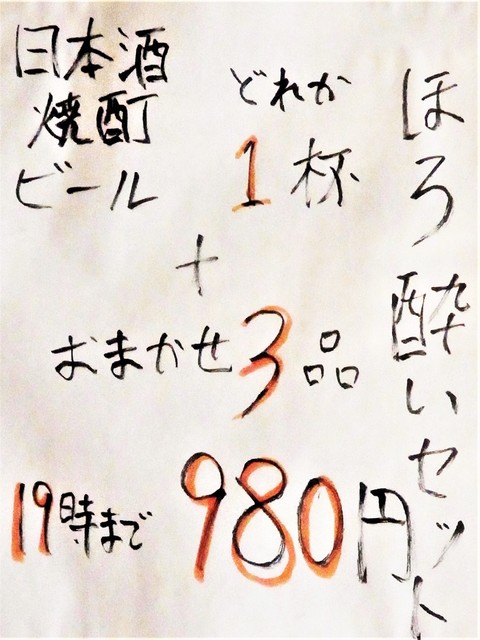 ほろ酔いセット
日本酒
焼酎
ビール
どれか
1杯
+
おまかせ3品
19時まで
980円